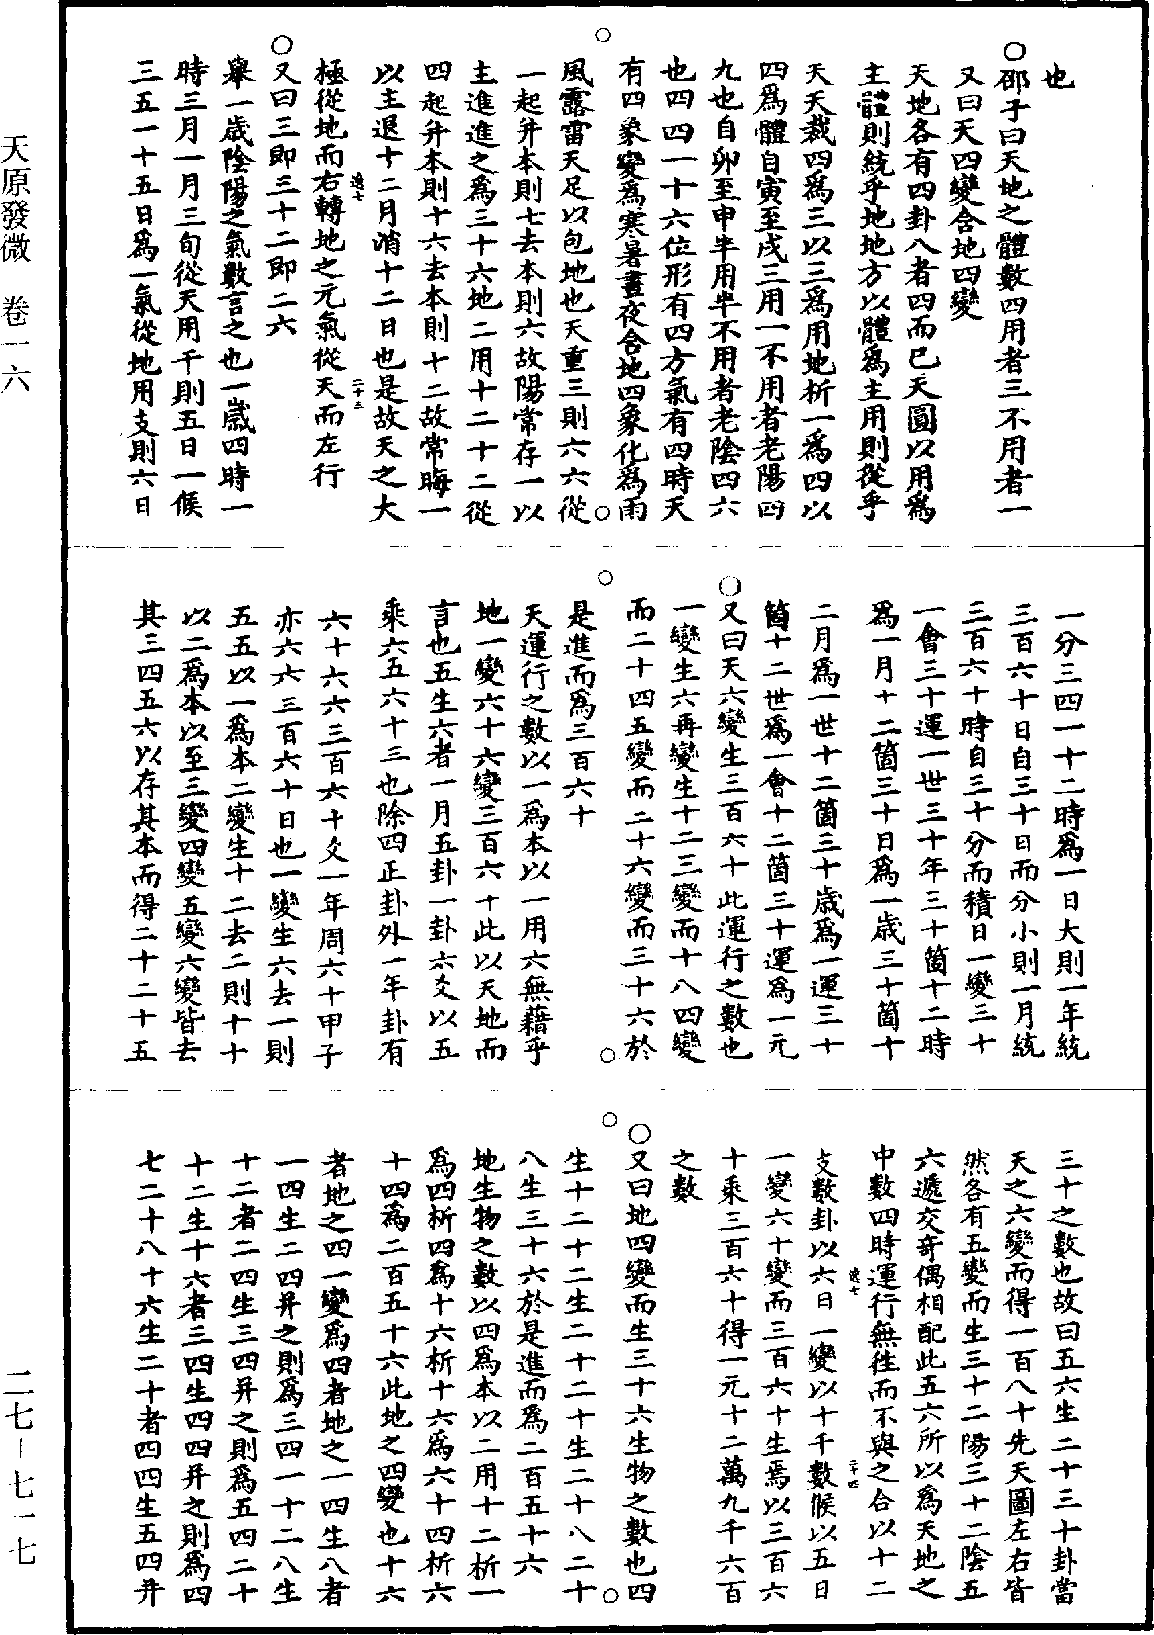 也
○邵子曰天地之體數四用者三不用者一
又曰天四變含地四變
天地各有四卦八者四而已天圓以用爲
主體則統乎地地方以體爲主用則從乎
天天裁四爲三以三爲用地析一爲四以
四爲體自寅至戌三用一不用者老陽四
九也自卯至申半用半不用者老陰四六
也四四一十六位形有四方氣有四時天
有四象變爲寒暑晝夜含地四象化爲雨
風露雷天足以包地也天重三則六六從
一起并本則七去本則六故陽常存一以
主進進之爲三十六地二用十二十二從
四起并本則十六去本則十二故常晦一
以主退十二月消十二日也是故天之大
逸七 二十三
極從地而右轉地之元氣從天而左行
○又曰三即三十二即二六
舉一歲陰陽之氣數言之也一歲四時一
時三月一月三旬從天用干則五日一候
三五一十五日爲一氣從地用支則六日
一分三四一十二時爲一日大則一年統
三百六十日自三十日而分小則一月統
三百六十時自三十分而積日一變三十
一會三十運一世三十年三十箇十二時
爲一月十二箇三十日爲一歲三十箇十
二月爲一世十二箇三十歲爲一運三十
箇十二世爲一會十二箇三十運爲一元
○又曰天六變生三百六十此運行之數也
一變生六再變生十二三變而十八四變
而二十四五變而二十六變而三十六於
是進而爲三百六十
天運行之數以一爲本以一用六無藉乎
地一變六十六變三百六十此以天地而
言也五生六者一月五卦一卦六爻以五
乘六五六十三也除四正卦外一年卦有
六十六六三百六十爻一年周六十甲子
亦六六三百六十日也一變生六去一則
五五以一爲本二變生十二去二則十十
以二爲本以至三變四變五變六變皆去
其三四五六以存其本而得二十二十五
三十之數也故曰五六生二十三十卦當
天之六變而得一百八十先天圖左右皆
然各有五變而生三十二陽三十二陰五
六遞交奇偶相配此五六所以爲天地之
中數四時運行無往而不與之合以十二
逸七 二十四
支數卦以六日一變以十千數候以五日
一變六十變而三百六十生焉以三百六
十乘三百六十得一元十二萬九千六百
之數
○又曰地四變而生三十六生物之數也四
生十二十二生二十二十生二十八二十
八生三十六於是進而爲二百五十六
地生物之數以四爲本以二用十二析一
爲四析四爲十六析十六爲六十四析六
十四爲二百五十六此地之四變也十六
者地之四一變爲四者地之一四生八者
一四生二四并之則爲三四一十二八生
十二者二四生三四并之則爲五四二十
十二生十六者三四生四四并之則爲四
七二十八十六生二十者四四生五四并
天原發微 卷一六
二七—七一七